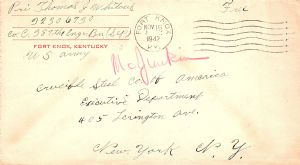 Pvt. Thomas J. Whitlock
32306730
Co. C. 387th Engr. Bn. (Sep)
FORT KNOX, KENTUCKY
U S army
FORT KNOX
NOV 18
1942
KY.
Free
McJunkin
Crucible Steel Co. of America
Executive Department
405 Lexington Ave.
New York N. Y.